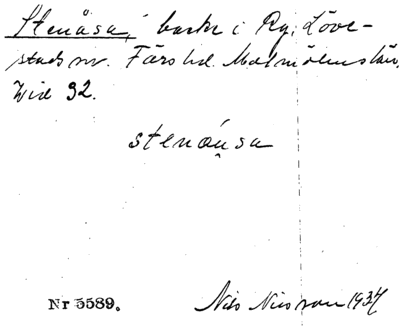 Stenåsa, backe i Rg. Löve-
stads sn. Färs hd. Malmöhus län.
Wid 92.
stenåu̯sa
Nr 5589.
Nils Nilsson 1937